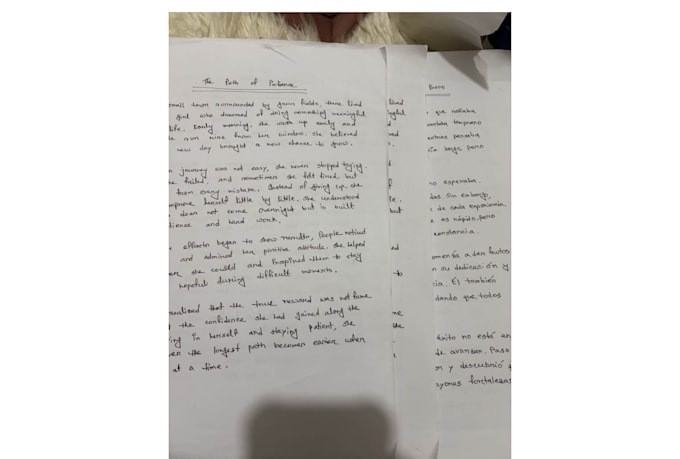 The Path of Patience
small town surrounded by green fields, there lived
girl who dreamed of doing something meaningful
life. Early morning, she woke up early and
sun rise from her window. She believed
new day brought a new chance to grow.
journey was not easy, she never stopped trying.
failed, and sometimes she felt tired, but
from every mistake. Instead of giving up, she
herself little by little. She understood
does not come overnight but is built
and hard work.
efforts began to show results, People noticed
and admired her positive attitude. She helped
she could and inspired them to stay
hopeful during difficult moments.
realized that the true reward was not fame
the confidence she had gained along the
in herself and staying patient, she
the longest path becomes easier when
at a time.
lived
but
ed
to
me
the
Bueno
que soñaba
temprano
pensaba
largo, pero
no esperaba.
Sin embargo,
de cada experiencia
es rápido, pero
constancia.
a dar frutos
su dedicación y
Él también
dando que todos
éxito no está en
de avanzar. Paso
y descubrió
mayores fortalezas